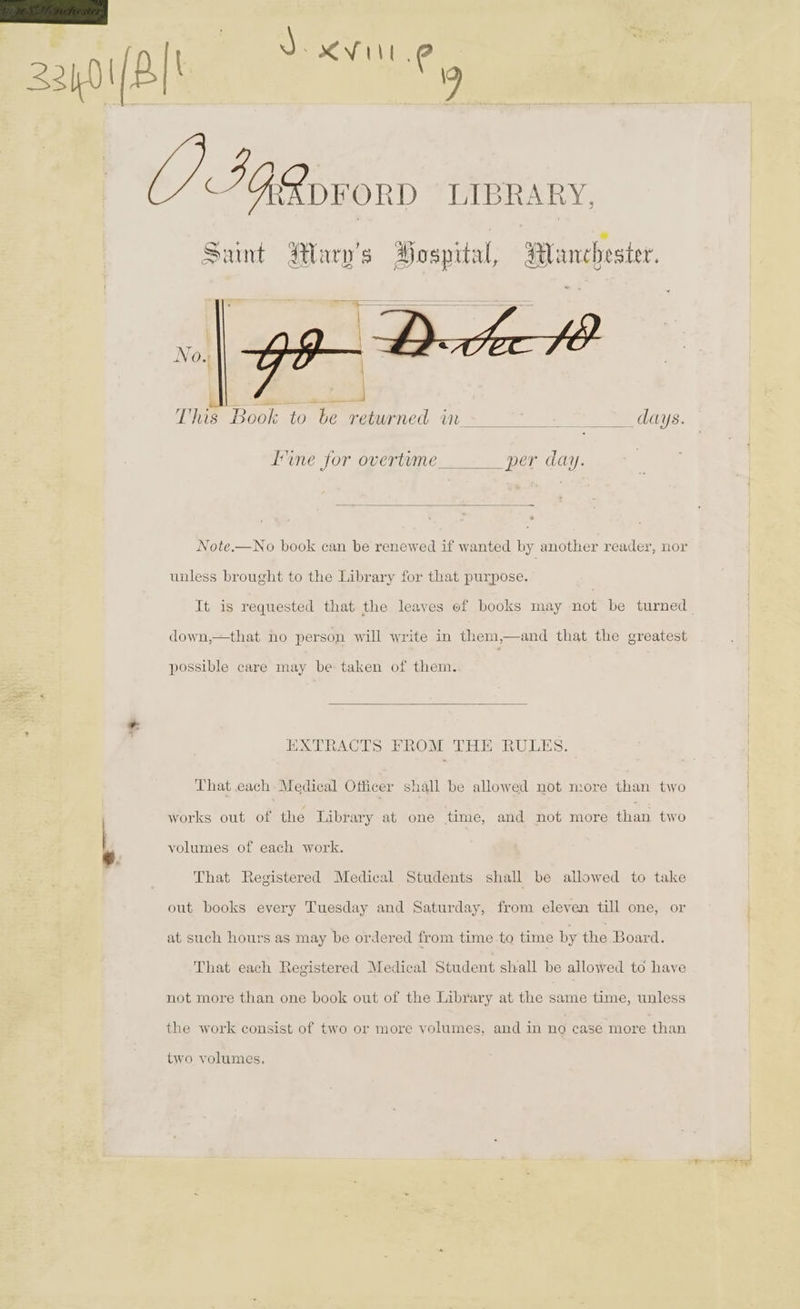 33401/B/1
J. XVIII. P
19
RADFORD LIBRARY,
Saint Mary's Hospital, Manchester.
No.
This Book to be returned in days.
Fine for overtime per day.
Note.—No book can be renewed if wanted by another reader, nor
unless brought to the Library for that purpose.
It is requested that the leaves of books may not be turned
down,—that no person will write in them,—and that the greatest
possible care may be taken of them.
EXTRACTS FROM THE RULES.
That each Medical Officer shall be allowed not more than two
works out of the Library at one time, and not more than two
volumes of each work.
That Registered Medical Students shall be allowed to take
out books every Tuesday and Saturday, from eleven till one, or
at such hours as may be ordered from time to time by the Board.
That each Registered Medical Student shall be allowed to have
not more than one book out of the Library at the same time, unless
the work consist of two or more volumes, and in no case more than
two volumes.